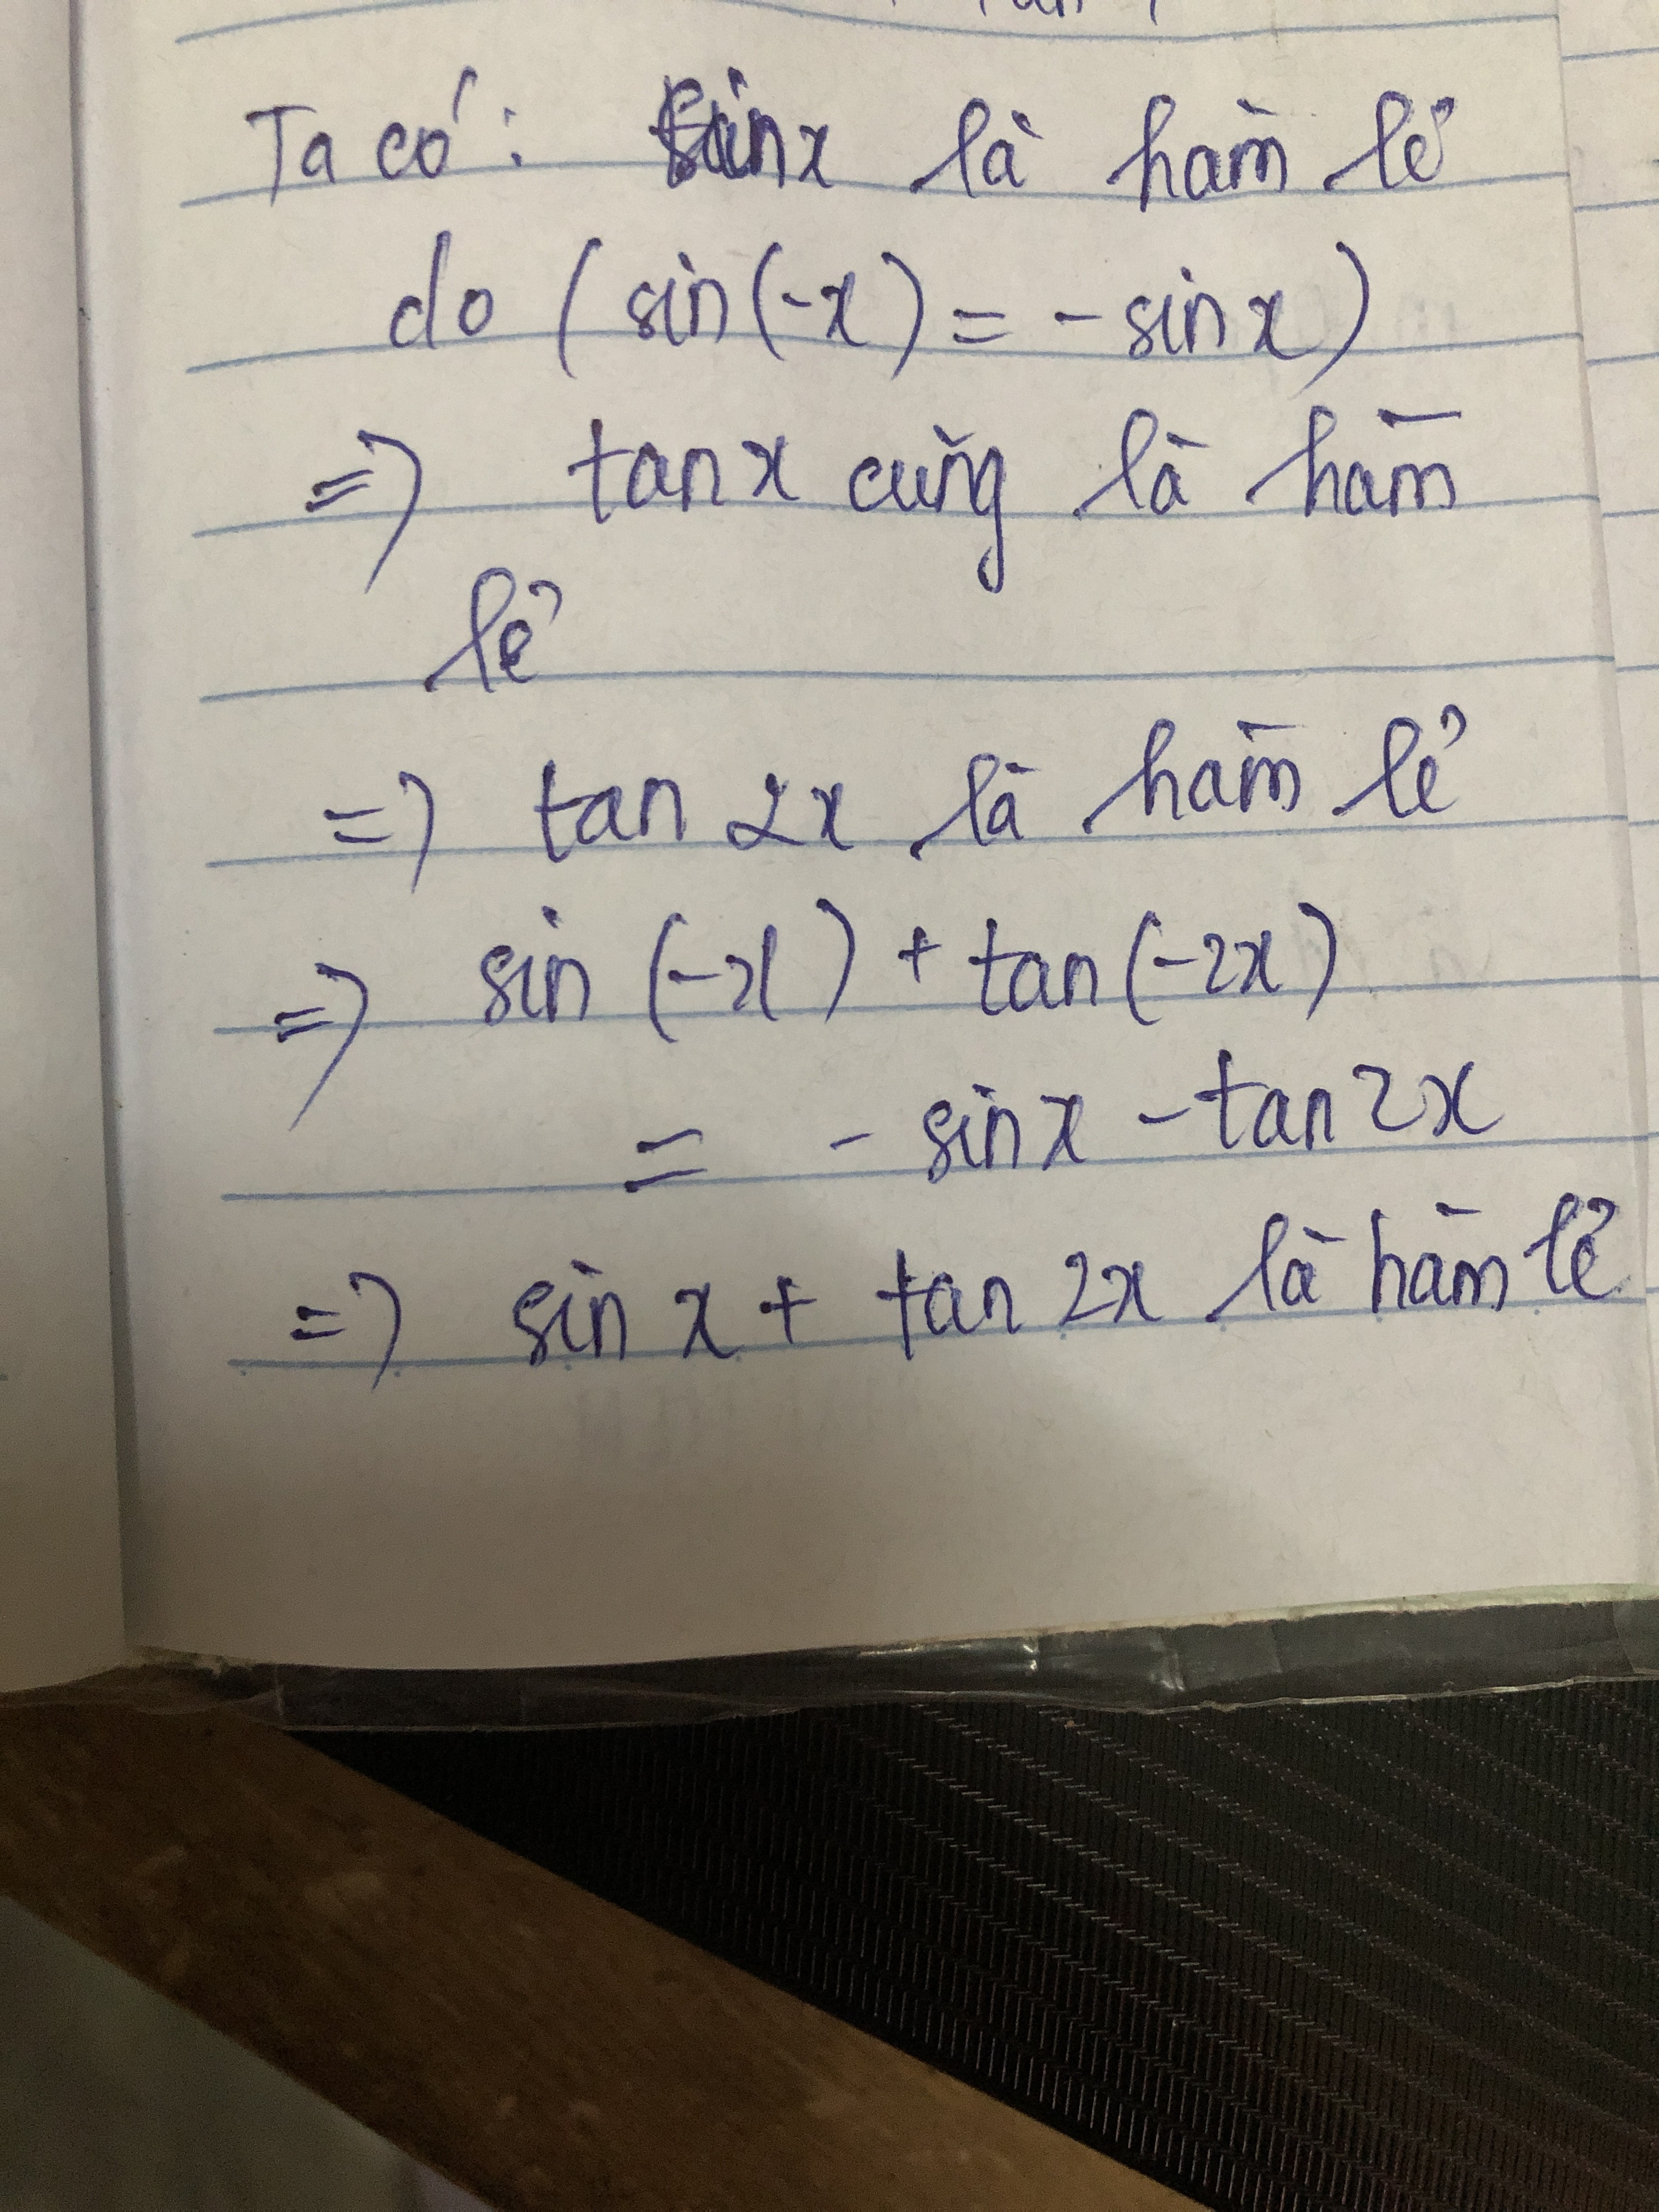 Ta có: sinx là hàm lẻ
do (sin(-x) = -sinx)
=> tanx cũng là hàm
lẻ
=> tan 2x là hàm lẻ
=> sin (-x) + tan(-2x)
= - sinx - tan2x
=> sin x + tan 2x là hàm lẻ